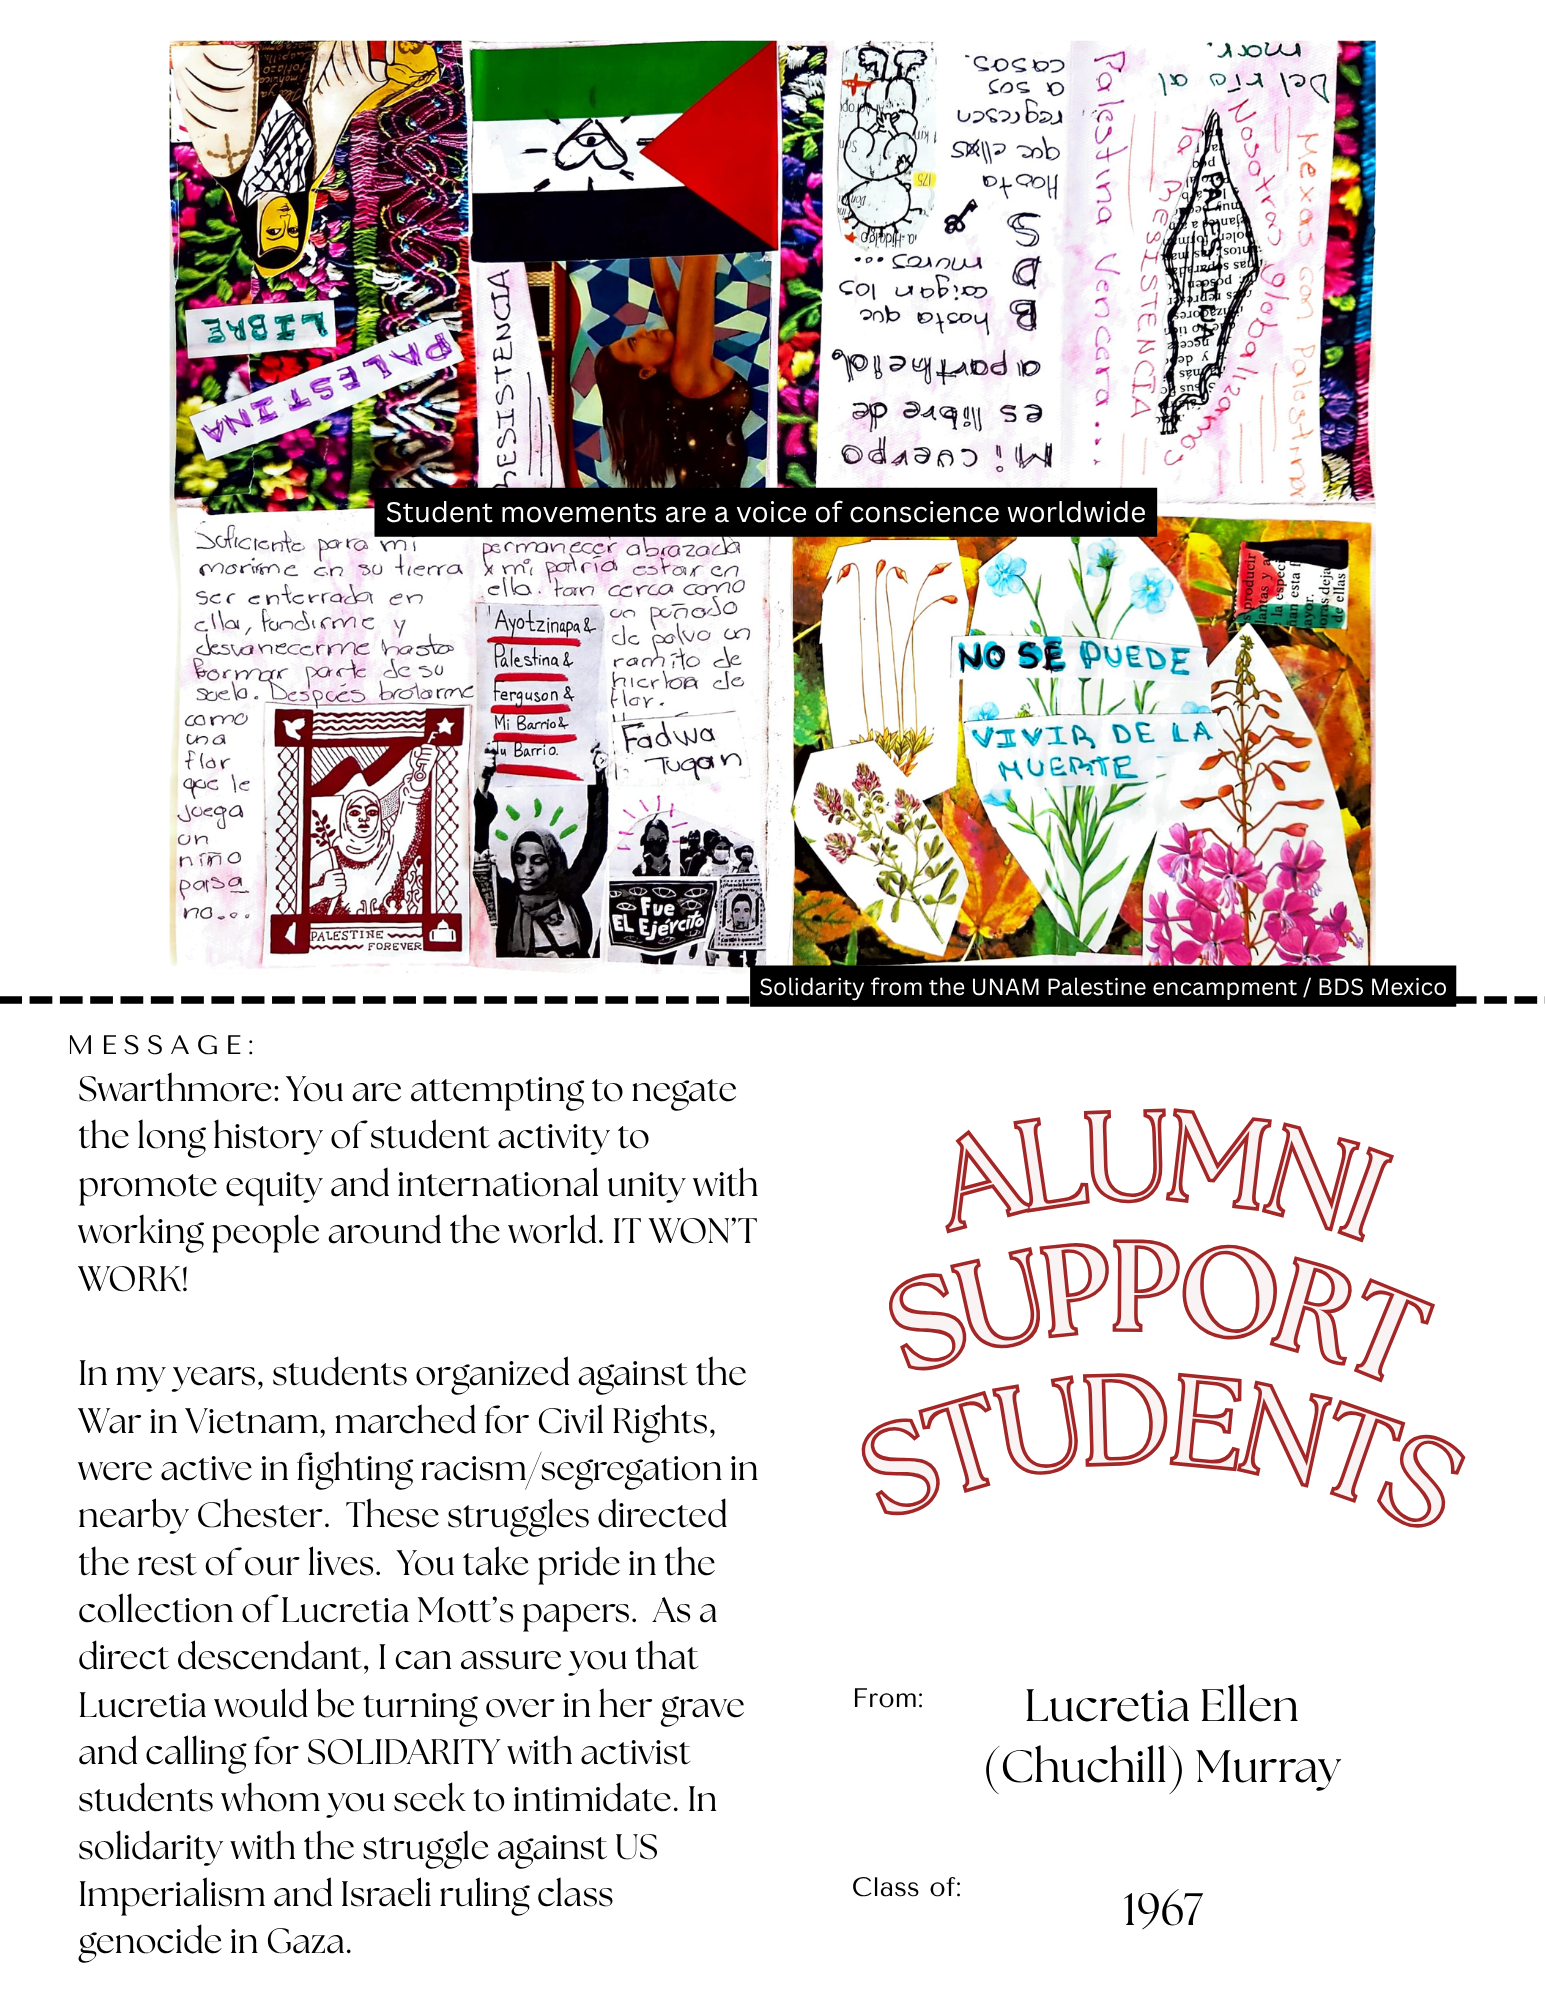 LIBRE
PALESTINA
RESISTENCIA
Mi cuerpo
es libre de
apartheid
hasta que
caigan los
muros...
B
D
S
Hasta
que ellxs
regresen
a sus
casas.
175
Palestina Vencera...
la RESISTENCIA
PALESTINA
Nosotras globalizamos
Mexas con Palestina
Del río al
mar.
Student movements are a voice of conscience worldwide
Suficiente para mi
morirme en su tierra
ser enterrada en
ella, fundirme y
desvanecerme hasta
formar parte de su
suelo. Después brotarme
como
una
flor
que le
juega
un
niño
paisa
no...
PALESTINE
FOREVER
permanecer abrazada
x mi patria estar en
ella. tan cerca como
un puñado
de polvo un
ramito de
hierba de
flor.
Fadwa
Tuqan
Ayotzinapa &
Palestina &
Ferguson &
Mi Barrio &
Tu Barrio.
Fue
EL Ejército
NO SE PUEDE
VIVIR DE LA
MUERTE
producir
esta f
avor.
oras deja
de ellas
Solidarity from the UNAM Palestine encampment / BDS Mexico
MESSAGE:
Swarthmore: You are attempting to negate
the long history of student activity to
promote equity and international unity with
working people around the world. IT WON'T
WORK!
In my years, students organized against the
War in Vietnam, marched for Civil Rights,
were active in fighting racism/segregation in
nearby Chester.  These struggles directed
the rest of our lives.  You take pride in the
collection of Lucretia Mott's papers.  As a
direct descendant, I can assure you that
Lucretia would be turning over in her grave
and calling for SOLIDARITY with activist
students whom you seek to intimidate. In
solidarity with the struggle against US
Imperialism and Israeli ruling class
genocide in Gaza.
ALUMNI
SUPPORT
STUDENTS
From:
Lucretia Ellen
(Chuchill) Murray
Class of:
1967